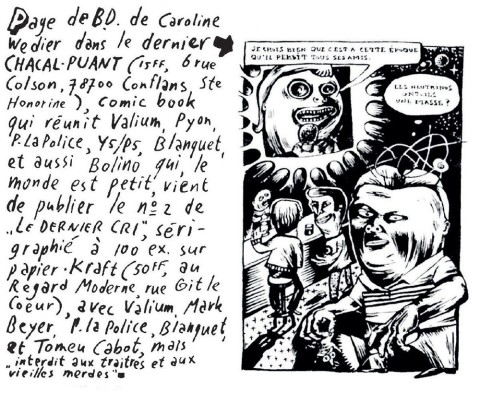 Page de B.D. de Caroline
Wedier dans le dernier
CHACAL-PUANT (15FF, 6 rue
Colson, 78700 Conflans, Ste
Honorine), comic book
qui réunit Valium, Pyon,
P. LaPolice, Y5/P5, Blanquet,
et aussi Bolino qui, le
monde est petit, vient
de publier le nº 2 de
„LE DERNIER CRI", séri-
graphié à 100 ex. sur
papier-Kraft (50FF, au
Regard Moderne, rue Gît le
Coeur), avec Valium, Mark
Beyer, P. la Police, Blanquet,
et Tomeu Cabot, mais
„interdit aux traîtres et aux
vieilles merdes"
JE CROIS BIEN QUE C'EST A CETTE ÉPOQUE
QU'IL PERDIT TOUS SES AMIS.
LES NEUTRINOS
ONT-ILS
UNE MASSE?